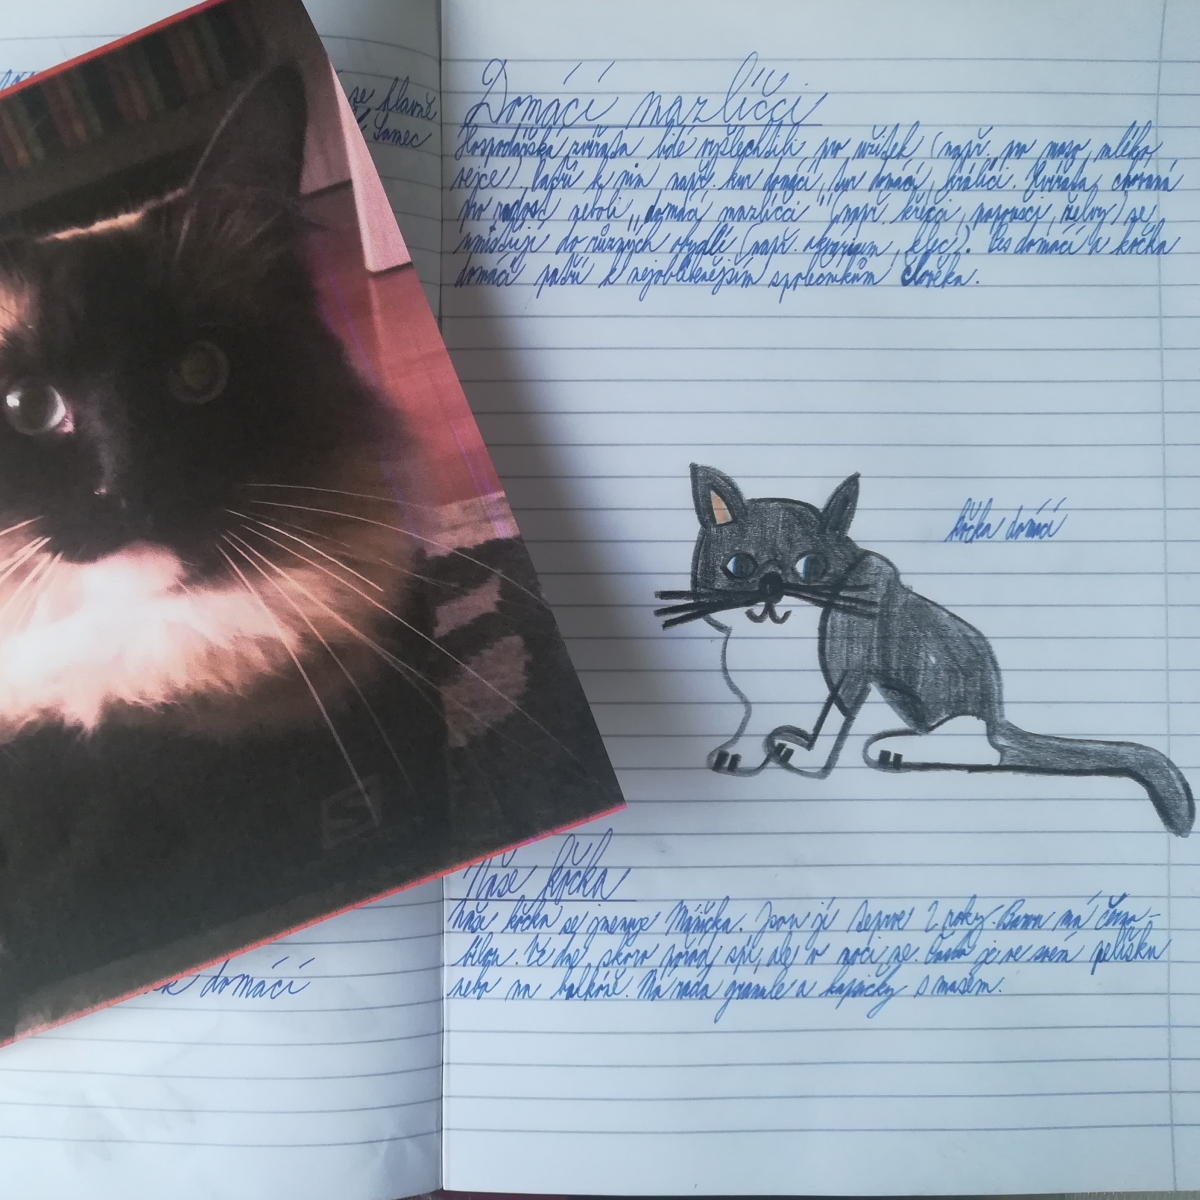 se hlavně
samec
Domácí mazlíčci
Hospodářská zvířata lidé vyšlechtili pro užitek (např. pro maso, mléko,
vejce). Patří k nim např. kur domácí, tur domácí, králíci. Zvířata, chovaná
pro radost neboli "domácí mazlíčci" (např. křečci, papoušci, želvy) se
umisťují do různých obydlí (např. akvárium, klec). Pes domácí a kočka
domácí patří k nejoblíbenějším společníkům člověka.
kočka domácí
Naše kočka
Naše kočka se jmenuje Jsou jí teprve 2 roky. Barvu má černo-
bílou. Ve dne skoro pořád spí, ale v noci ne. je ve svém pelíšku
nebo na balkóně. Má ráda granule a kapsičky s masem.
domácí